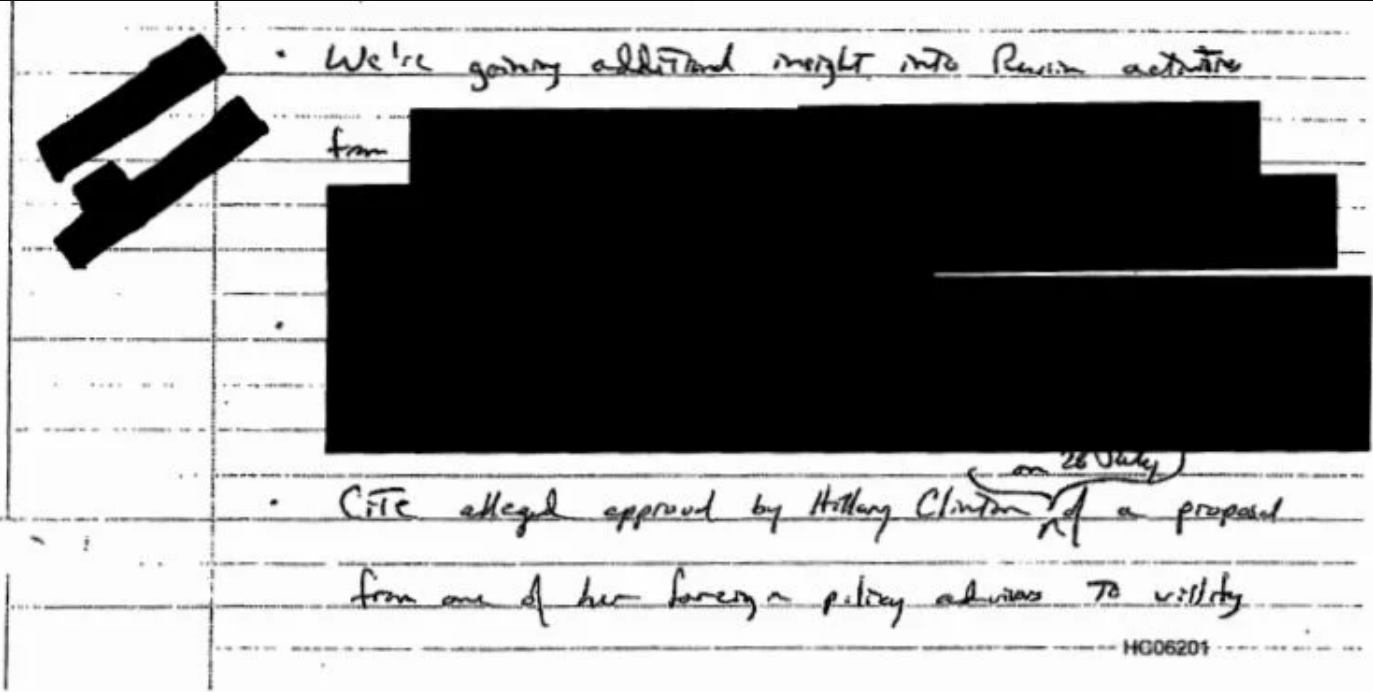 • We're gaining additional insight into Russian activities
from
•
(on 26 July)
• CITE alleged approval by Hillary Clinton of a proposal
from one of her foreign policy advisors to villify
HC06201